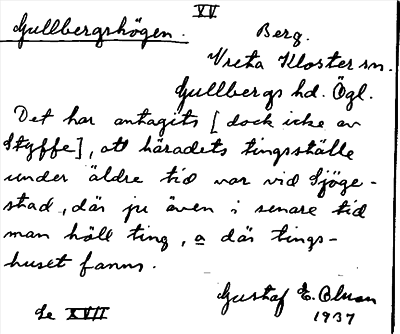 XV
Gullbergshögen.
Berg.
Vreta Kloster sn.
Gullbergs hd. Ögl.
Det har antagits [dock icke av
Styffe], att häradets tingsställe
under äldre tid var vid Sjöge-
stad, där ju även i senare tid
man höll ting, o där tings-
huset fanns.
Gustaf E. Bluan
1937
Se XVII